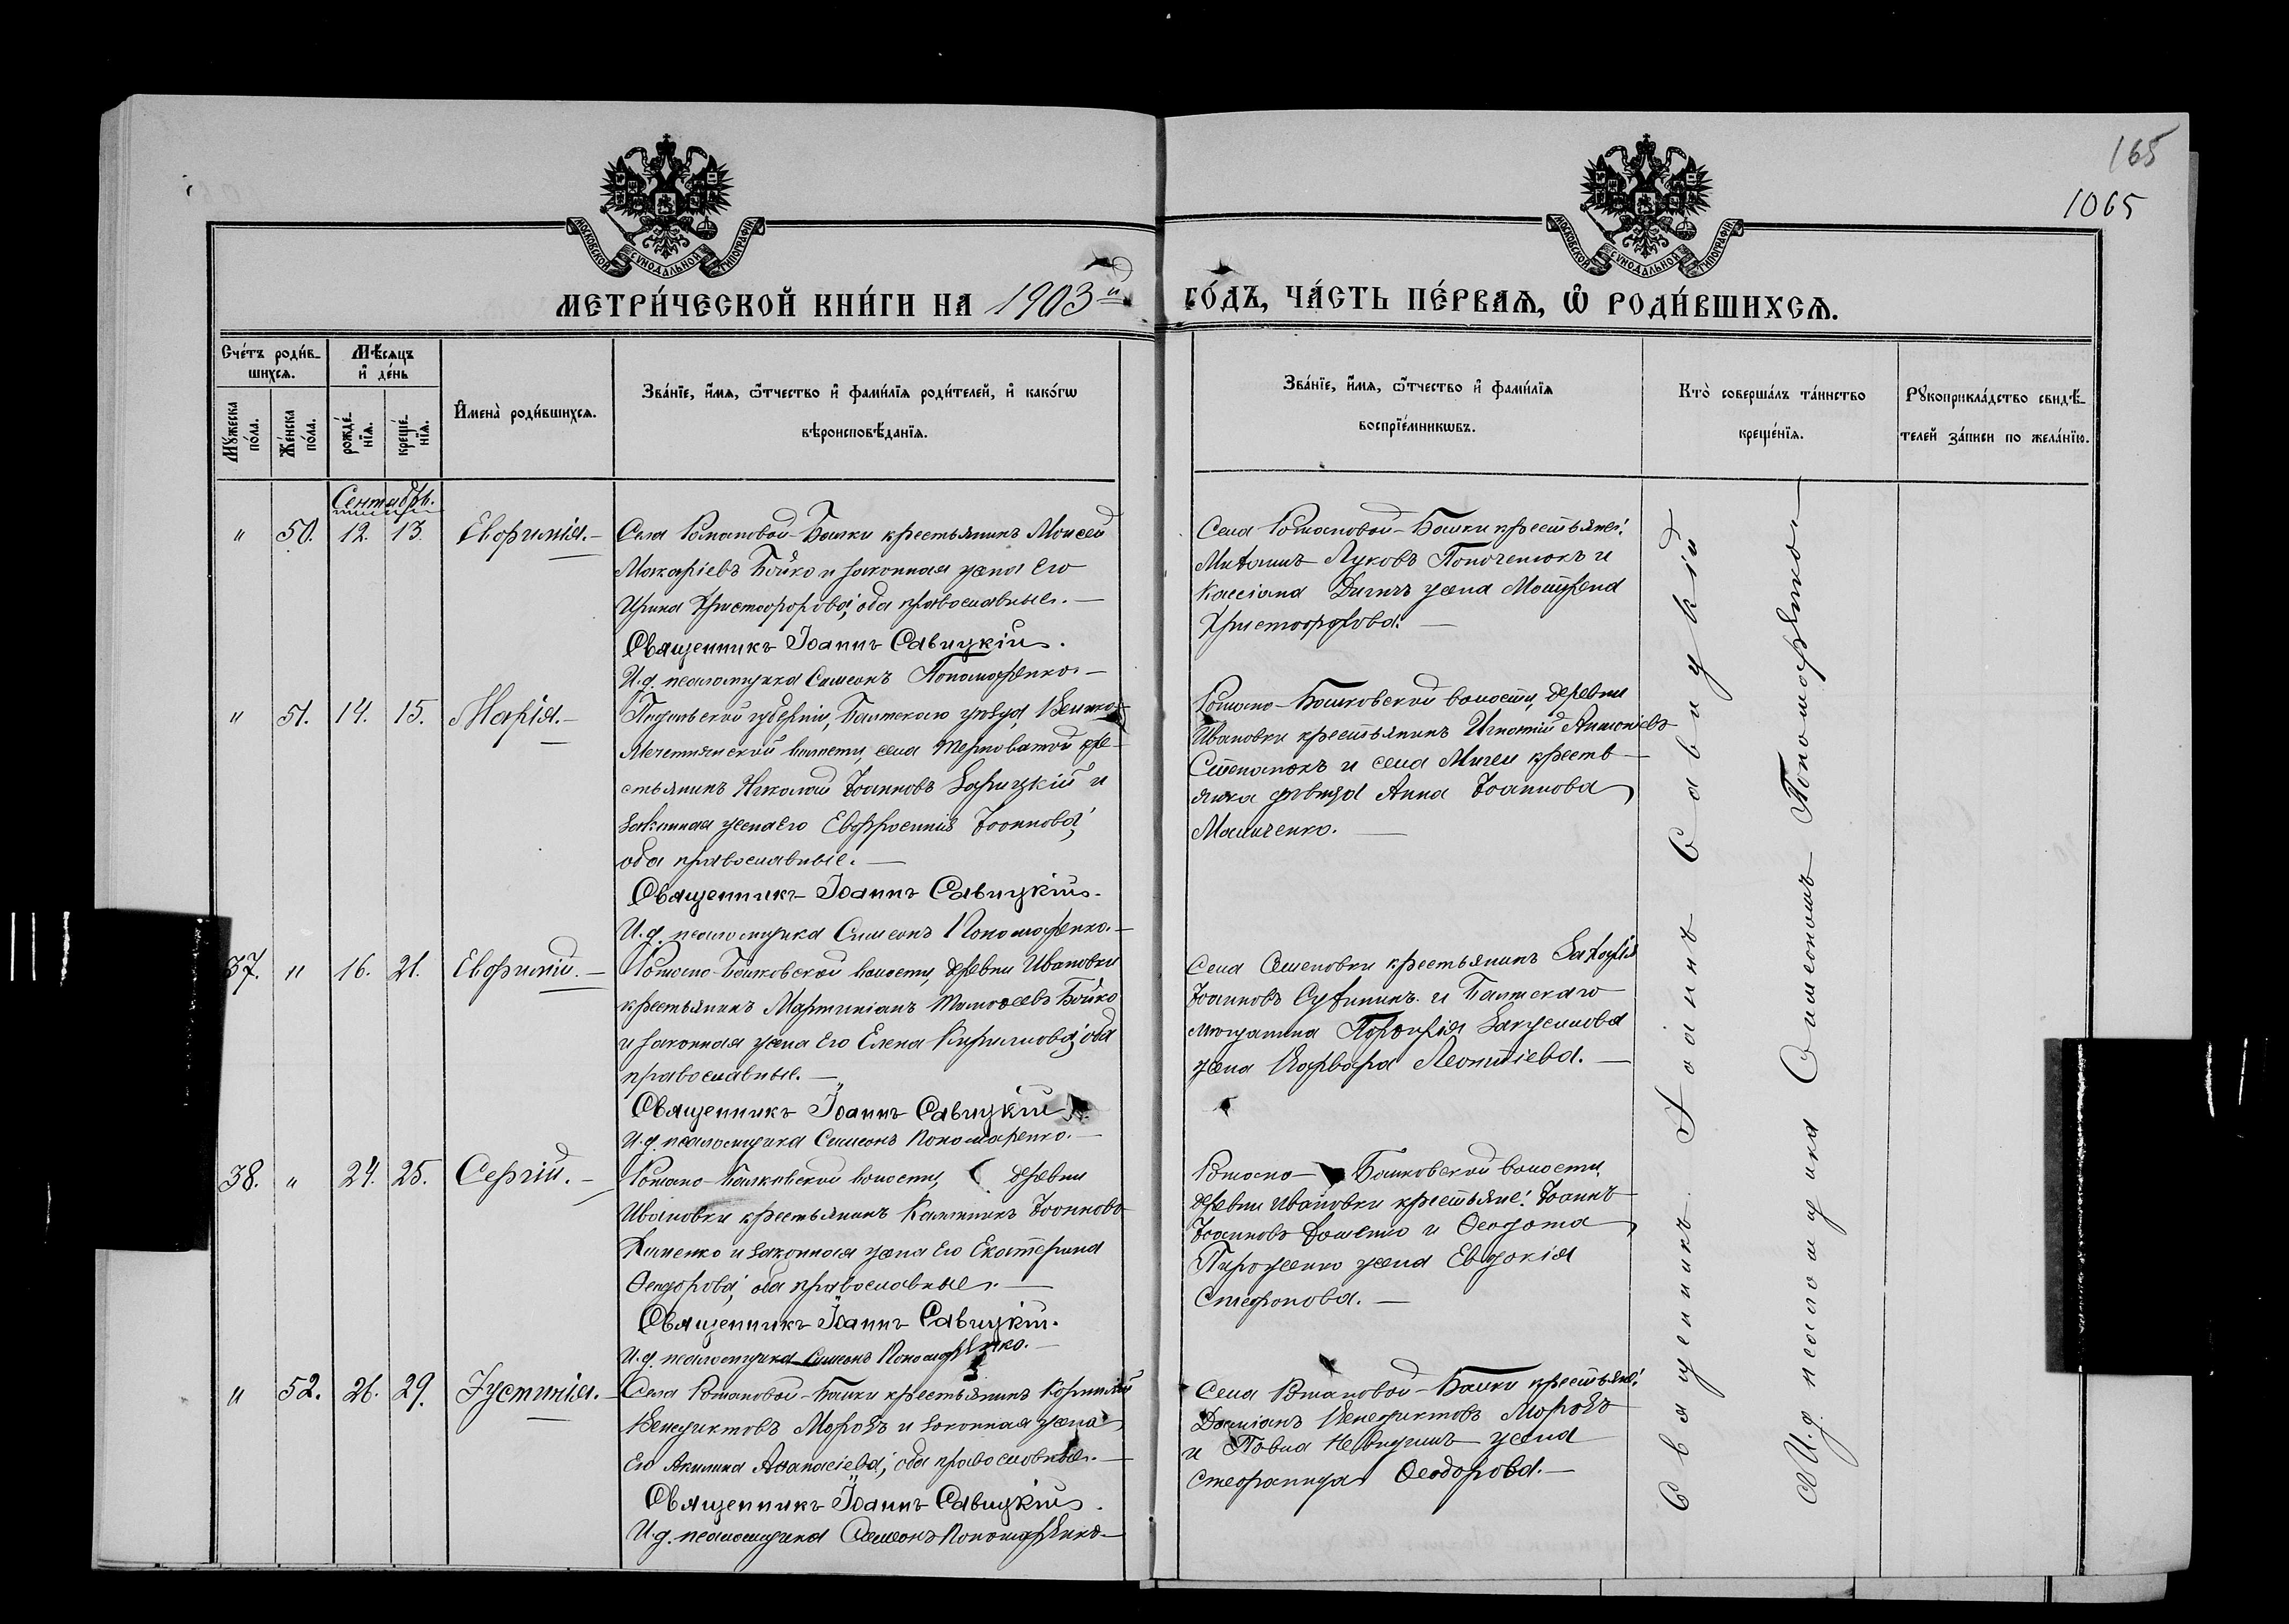 165
1065
МОСКОВСКОЙ СѴНОДАЛЬНОЙ ТИПОГРАФІИ
МОСКОВСКОЙ СѴНОДАЛЬНОЙ ТИПОГРАФІИ
МЕТРИ́ЧЕСКОЙ КНИ́ГИ НА 1903й
ГО́ДЪ, ЧА́СТЬ ПЕ́РВАѦ, Ѡ РОДИ́ВШИХСѦ.
Сче́тъ роди́в-
шихсѧ.
Мꙋ́жеска по́ла.
Же́нска по́ла.
Мѣ́сѧцъ
и҆ де́нь
рожде́-нїѧ.
креще́-нїѧ.
И҆мена̀ роди́вшихсѧ.
Зва́нїе, и҆́мѧ, ѻ҆́тчество и҆ фами́лїѧ роди́телей, и҆ како́гѡ
вѣроисповѣ́данїѧ.
Зва́нїе, и҆́мѧ, ѻ҆́тчество и҆ фами́лїѧ
воспрїе́мникѡвъ.
Кто̀ соверша́лъ та́инство
креще́нїѧ.
Рꙋкоприкла́дство свидѣ́-
телей за́писи по жела́нїю.
Сентябрь.
" 50. 12. 13. Евфимія.—
Села Романовой-Балки крестьянинъ Моисей
Макаріевъ Бойко и законная жена его
Ирина Христофорова; оба православные.—
Священникъ Іоаннъ Савицкій.
И.д. псаломщика Симеонъ Пономаренко.—
Села Романовой-Балки крестьяне:
Луковъ и
Кассіана жена Матрена
Христофорова.—
" 51. 14. 15. Марія.—
Подольской губерніи, Балтскаго уѣзда,
волости, села Терноватой кре-
стьянинъ Николай Іоанновъ Зарицкій и
законная жена его Евфросинія Іоаннова;
оба православные.—
Священникъ Іоаннъ Савицкій.
И.д. псаломщика Симеонъ Пономаренко.—
Романо-Балковской волости, деревни
Ивановки крестьянинъ Игнатій Антоніевъ
Степанюкъ и села Мигеи кресть-
янка дѣвица Анна Іоаннова
37. " 16. 21. Евфимій.—
Романо-Балковской волости, деревни Ивановки
крестьянинъ Мартиніанъ Тимоѳеевъ Бойко
и законная жена его Елена Кириллова; оба
православные.—
Священникъ Іоаннъ Савицкій.
И.д. псаломщика Симеонъ Пономаренко.—
Села Семеновки крестьянинъ Захарія
Іоанновъ и Балтскаго
мѣщанина Порфирія
жена Варвара Леонтіева.—
38. " 24. 25. Сергій.—
Романо-Балковской волости, деревни
Ивановки крестьянинъ Каллиникъ Іоанновъ
и законная жена его Екатерина
Ѳеодорова; оба православные.—
Священникъ Іоаннъ Савицкій.
И.д. псаломщика Симеонъ Пономаренко.—
Романо-Балковской волости,
деревни Ивановки крестьяне: Іоаннъ
Іоанновъ и Ѳеодота
жена Евдокія
Стефанова.—
" 52. 26. 29. Іустинія.—
Села Романовой-Балки крестьянинъ Корнилій
Венедиктовъ Морозъ и законная жена
его Акилина Аѳанасіева; оба православные.—
Священникъ Іоаннъ Савицкій.
И.д. псаломщика Симеонъ Пономаренко.—
Села Романовой-Балки крестьяне:
Даміанъ Венедиктовъ Морозъ
и Павла жена
Стефанида Ѳеодорова.—
Священникъ Іоаннъ Савицкій
И.д. псаломщика Симеонъ Пономаренко—